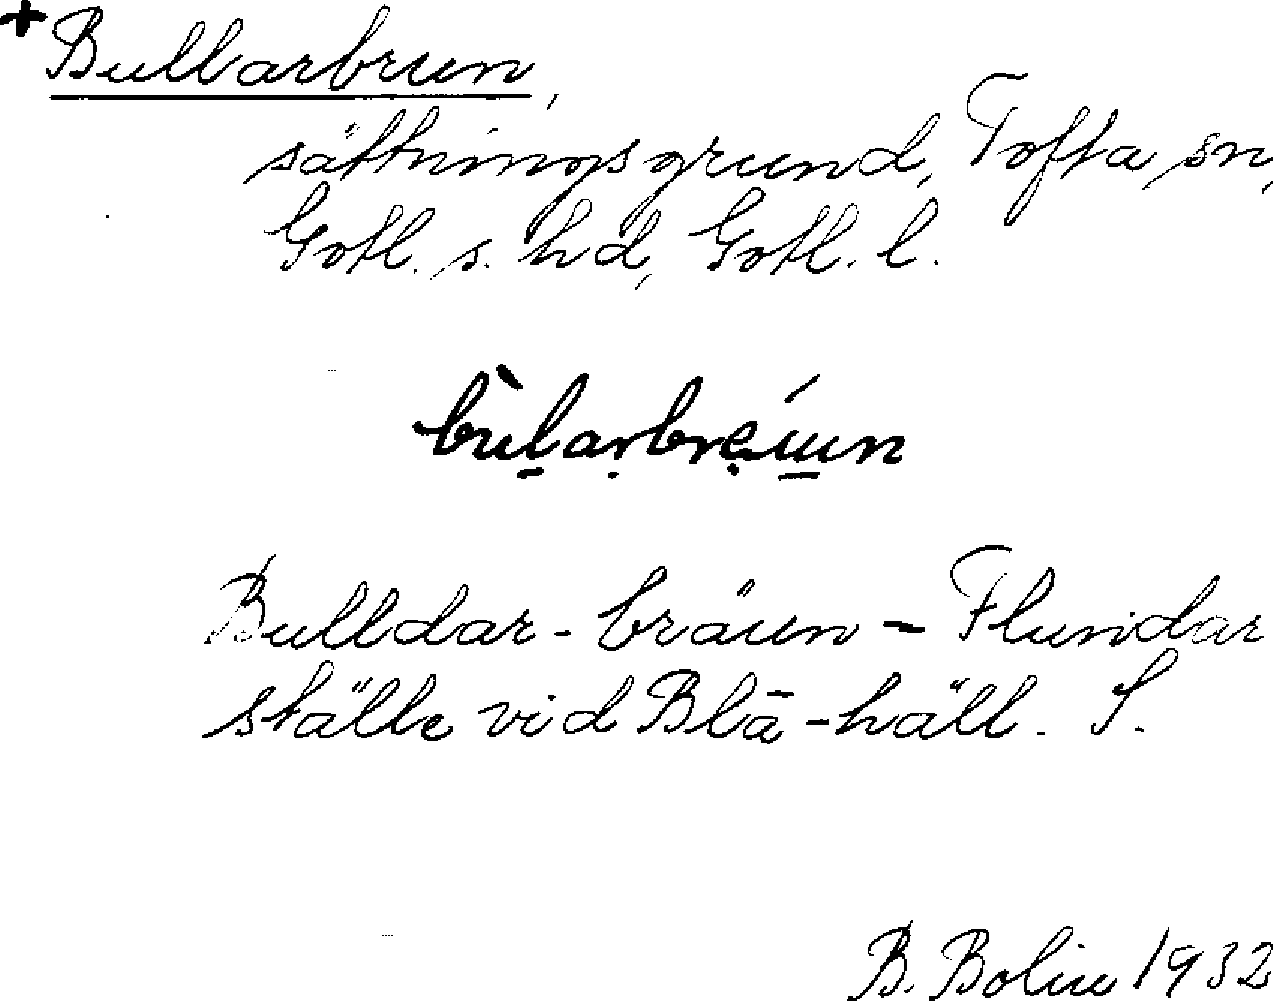 + Bullarbrun,
sättningsgrund, Tofta sn,
Gotl. s. hd, Gotl. l.
bùlarbrẹúun
Bulldar-bräun - Flundar
ställe vid Blā-häll. S.
B. Bolin 1932